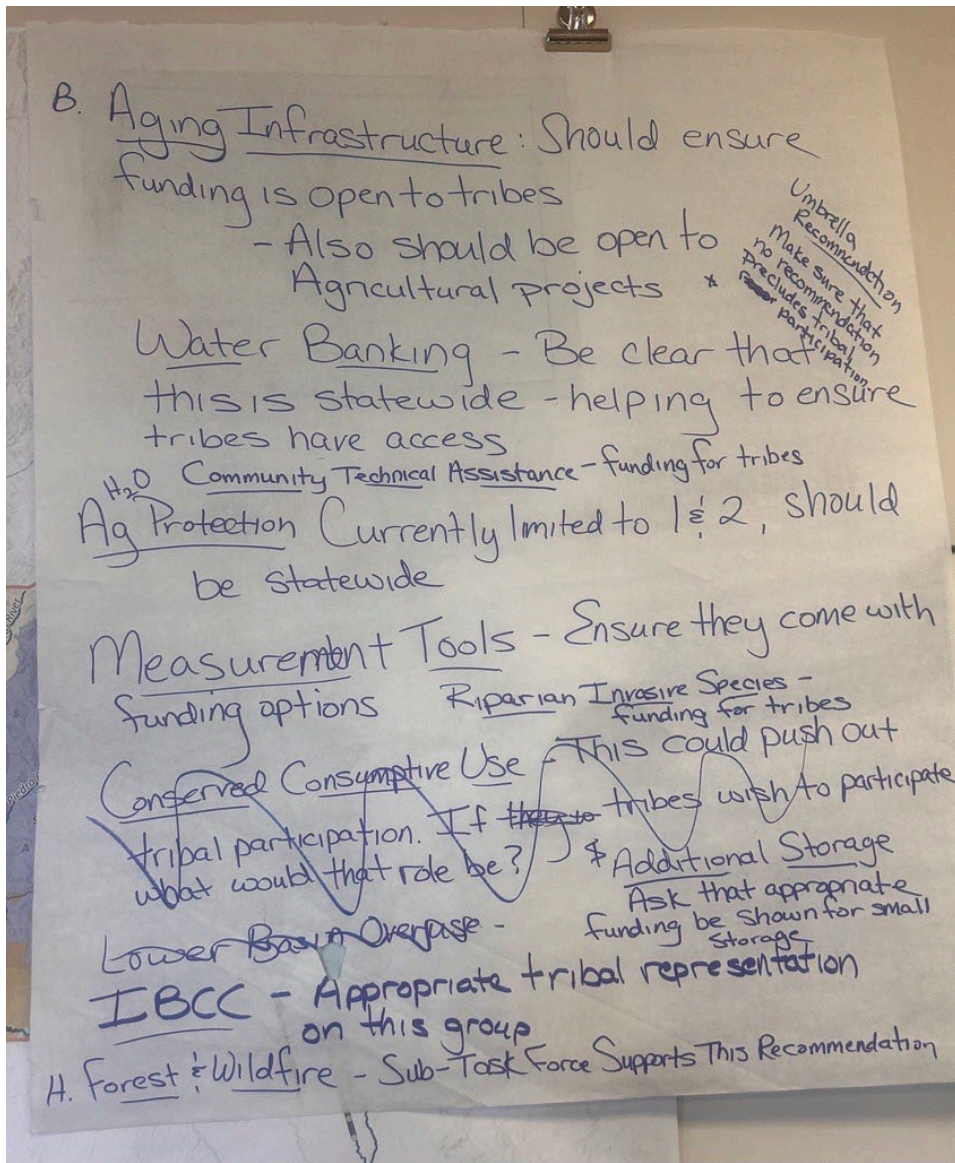 B. Aging Infrastructure: Should ensure
funding is open to tribes
- Also should be open to
Agricultural projects *
Umbrella
Recommendation
Make sure that
no recommendation
precludes tribal
participation
Water Banking - Be clear that
this is statewide - helping to ensure
tribes have access
Community Technical Assistance - funding for tribes
H2O
Ag Protection Currently limited to 1 & 2, should
be statewide
Measurement Tools - Ensure they come with
funding options
Riparian Invasive Species -
funding for tribes
Conserved Consumptive Use - This could push out
tribal participation. If they to tribes wish to participate
what would that role be?
$ Additional Storage
Ask that appropriate
funding be shown for small
storage
Lower Basin Overuse -
IBCC - Appropriate tribal representation
on this group
H. Forest & Wildfire - Sub-Task Force Supports This Recommendation
River
Piedra